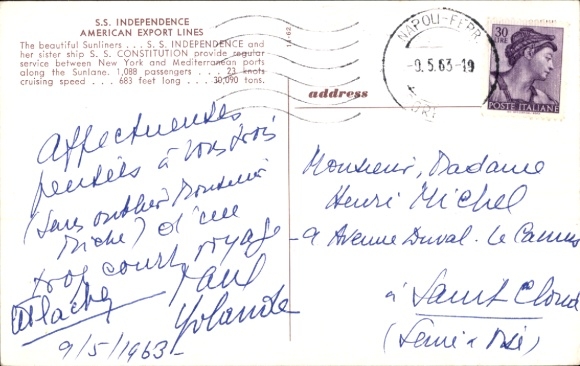 S.S. INDEPENDENCE
AMERICAN EXPORT LINES
The beautiful Sunliners . . . S. S. INDEPENDENCE and
her sister ship S. S. CONSTITUTION provide regular
service between New York and Mediterranean ports
along the Sunlane. 1,088 passengers . . . 23 knots
cruising speed . . . 683 feet long . . . 30,090 tons.
NAPOLI-FERR.
-9.5.63-19
30
LIRE
POSTE ITALIANE
address
Affectueuses
pensées à vous trois
(sans oublier Monsieur
Miche) d'un
trop court voyage
Paul
Yolande
9/5/1963-
Monsieur, Madame
Henri Michel
9 Avenue Duval-le Camus
à Saint Cloud
(Seine & Oise)